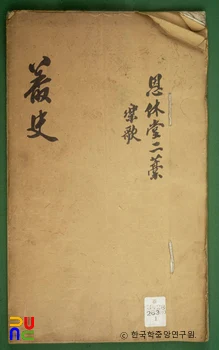 恩休堂二藁
樂歌
叢史
한국학중앙연구원